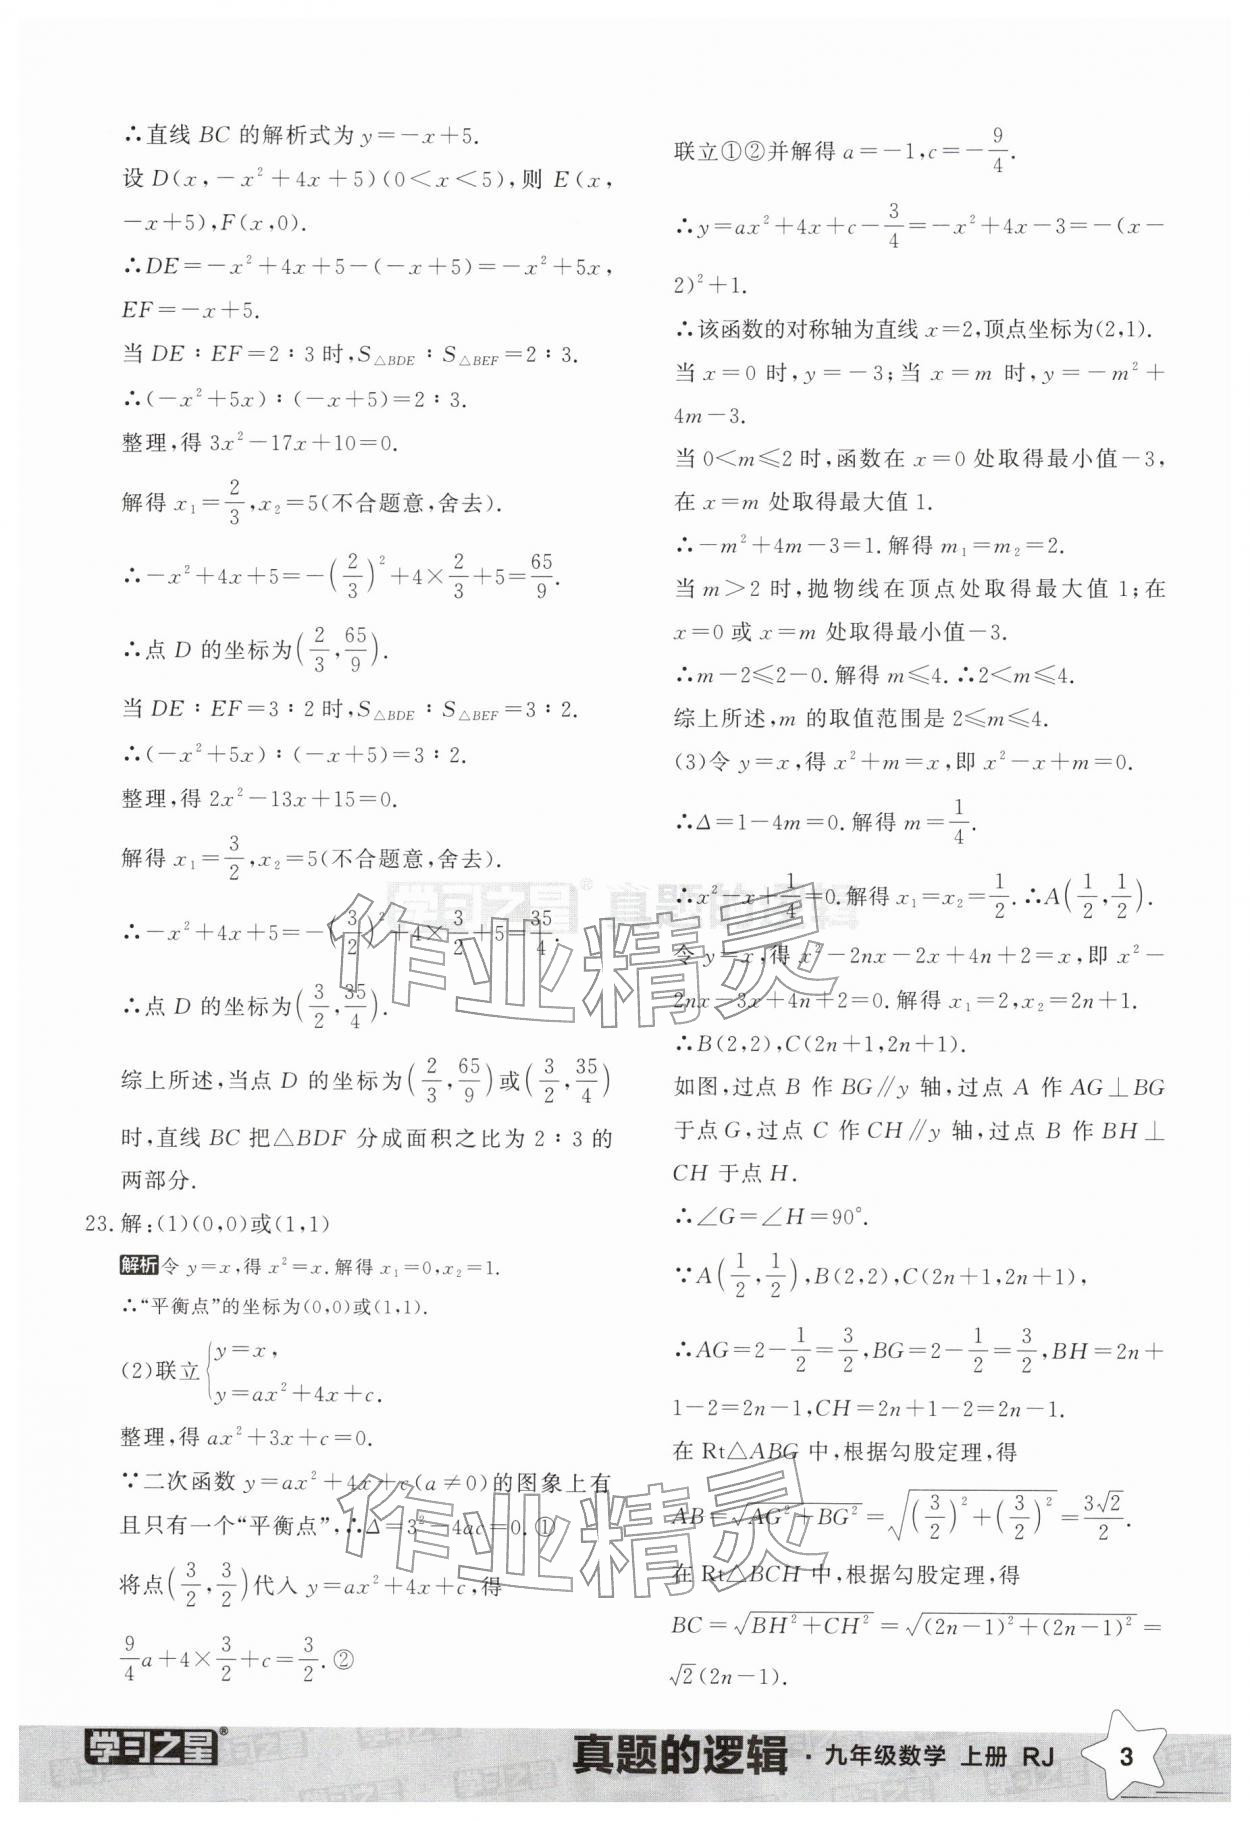 ∴直线 BC 的解析式为 y=-x+5.
设 D(x,-x²+4x+5)(0<x<5),则 E(x,
-x+5),F(x,0).
∴DE=-x²+4x+5-(-x+5)=-x²+5x,
EF=-x+5.
当 DE∶EF=2∶3 时,S△BDE∶S△BEF=2∶3.
∴(-x²+5x)∶(-x+5)=2∶3.
整理,得 3x²-17x+10=0.
解得 x₁=2/3,x₂=5(不合题意,舍去).
∴-x²+4x+5=-(2/3)²+4×2/3+5=65/9.
∴点 D 的坐标为(2/3,65/9).
当 DE∶EF=3∶2 时,S△BDE∶S△BEF=3∶2.
∴(-x²+5x)∶(-x+5)=3∶2.
整理,得 2x²-13x+15=0.
解得 x₁=3/2,x₂=5(不合题意,舍去).
∴-x²+4x+5=-(3/2)²+4×3/2+5=35/4.
∴点 D 的坐标为(3/2,35/4).
综上所述,当点 D 的坐标为(2/3,65/9)或(3/2,35/4)
时,直线 BC 把△BDF 分成面积之比为 2∶3 的
两部分.
23.解:(1)(0,0)或(1,1)
解析 令 y=x,得 x²=x.解得 x₁=0,x₂=1.
∴“平衡点”的坐标为(0,0)或(1,1).
(2)联立{y=x,
y=ax²+4x+c.
整理,得 ax²+3x+c=0.
∵二次函数 y=ax²+4x+c(a≠0)的图象上有
且只有一个“平衡点”,∴Δ=3²-4ac=0.①
将点(3/2,3/2)代入 y=ax²+4x+c,得
9/4a+4×3/2+c=3/2.②
联立①②并解得 a=-1,c=-9/4.
∴y=ax²+4x+c-3/4=-x²+4x-3=-(x-
2)²+1.
∴该函数的对称轴为直线 x=2,顶点坐标为(2,1).
当 x=0 时,y=-3;当 x=m 时,y=-m²+
4m-3.
当 0<m≤2 时,函数在 x=0 处取得最小值-3,
在 x=m 处取得最大值 1.
∴-m²+4m-3=1.解得 m₁=m₂=2.
当 m>2 时,抛物线在顶点处取得最大值 1;在
x=0 或 x=m 处取得最小值-3.
∴m-2≤2-0.解得 m≤4.∴2<m≤4.
综上所述,m 的取值范围是 2≤m≤4.
(3)令 y=x,得 x²+m=x,即 x²-x+m=0.
∴Δ=1-4m=0.解得 m=1/4.
∴x²-x+1/4=0.解得 x₁=x₂=1/2.∴A(1/2,1/2).
令 y=x,得 x²-2nx-2x+4n+2=x,即 x²-
2nx-3x+4n+2=0.解得 x₁=2,x₂=2n+1.
∴B(2,2),C(2n+1,2n+1).
如图,过点 B 作 BG∥y 轴,过点 A 作 AG⊥BG
于点G,过点 C 作 CH∥y 轴,过点 B 作 BH⊥
CH 于点 H.
∴∠G=∠H=90°.
∵A(1/2,1/2),B(2,2),C(2n+1,2n+1),
∴AG=2-1/2=3/2,BG=2-1/2=3/2,BH=2n+
1-2=2n-1,CH=2n+1-2=2n-1.
在 Rt△ABG 中,根据勾股定理,得
AB=√(AG²+BG²)=√((3/2)²+(3/2)²)=3√2/2.
在 Rt△BCH 中,根据勾股定理,得
BC=√(BH²+CH²)=√((2n-1)²+(2n-1)²)=
√2(2n-1).
学习之星® 真题的逻辑
作业精灵
作业精灵
学习之星® 真题的逻辑·九年级数学 上册 RJ 3